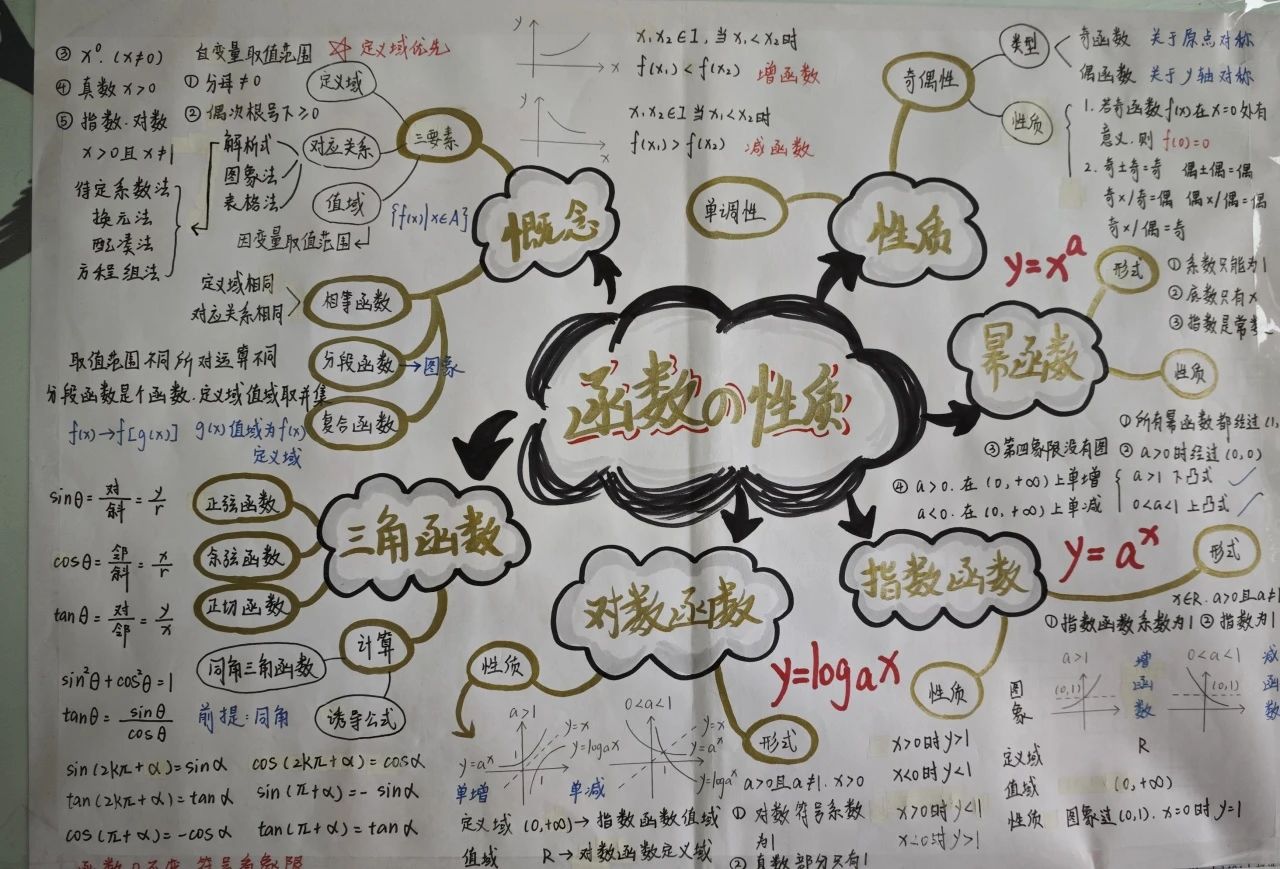 函数の性质
概念
三要素
定义域
自变量取值范围 ☆ 定义域优先
① 分母≠0
② 偶次根号下≥0
③ x⁰. (x≠0)
④ 真数 x>0
⑤ 指数.对数
x>0且x≠1
对应关系
解析式
图象法
表格法
待定系数法
换元法
配凑法
方程组法
值域
{f(x)|x∈A}
因变量取值范围
相等函数
定义域相同
对应关系相同
分段函数→图象
取值范围不同所对运算不同
分段函数是个函数.定义域值域取并集
复合函数
f(x)→f[g(x)] g(x)值域为f(x)
定义域
性质
单调性
y
x
x₁x₂∈I,当x₁<x₂时
f(x₁)<f(x₂) 增函数
y
x
x₁x₂∈I 当x₁<x₂时
f(x₁)>f(x₂) 减函数
奇偶性
类型
奇函数 关于原点对称
偶函数 关于y轴对称
性质
1. 若奇函数f(x)在x=0处有
意义.则 f(0)=0
2. 奇±奇=奇 偶±偶=偶
奇×/奇=偶 偶×/偶=偶
奇×/偶=奇
幂函数
y=xᵃ
形式
① 系数只能为1
② 底数只有x
③ 指数是常
性质
① 所有幂函数都经过(1,
② a>0时经过(0,0)
③ 第四象限没有图
④ a>0.在(0,+∞)上单增
a>1 下凸式
0<a<1 上凸式
a<0.在(0,+∞)上单减
指数函数
y=aˣ
形式
x∈R.a>0且a≠1
① 指数函数系数为1 ② 指数为1
性质
图象
a>1
(0,1)
增函数
0<a<1
(0,1)
减函数
定义域 R
值域 (0,+∞)
性质 图象过(0,1).x=0时y=1
x>0时y>1
x<0时y<1
x>0时y<1
x<0时y>1
对数函数
y=logₐx
形式
a>0且a≠1.x>0
① 对数符号系数
为1
② 真数部分只有1
性质
a>1
y=x
y=logax
y=aˣ
1
单增
0<a<1
y=x
y=aˣ
y=logaˣ
1
单减
定义域 (0,+∞)→指数函数值域
值域 R→对数函数定义域
三角函数
正弦函数
sinθ=对/斜=y/r
余弦函数
cosθ=邻/斜=x/r
正切函数
tanθ=对/邻=y/x
计算
同角三角函数
前提:同角
sin²θ+cos²θ=1
tanθ=sinθ/cosθ
诱导公式
sin(2kπ+α)=sinα cos(2kπ+α)=cosα
tan(2kπ+α)=tanα sin(π+α)=-sinα
cos(π+α)=-cosα tan(π+α)=tanα
函数口不变 符号看象限